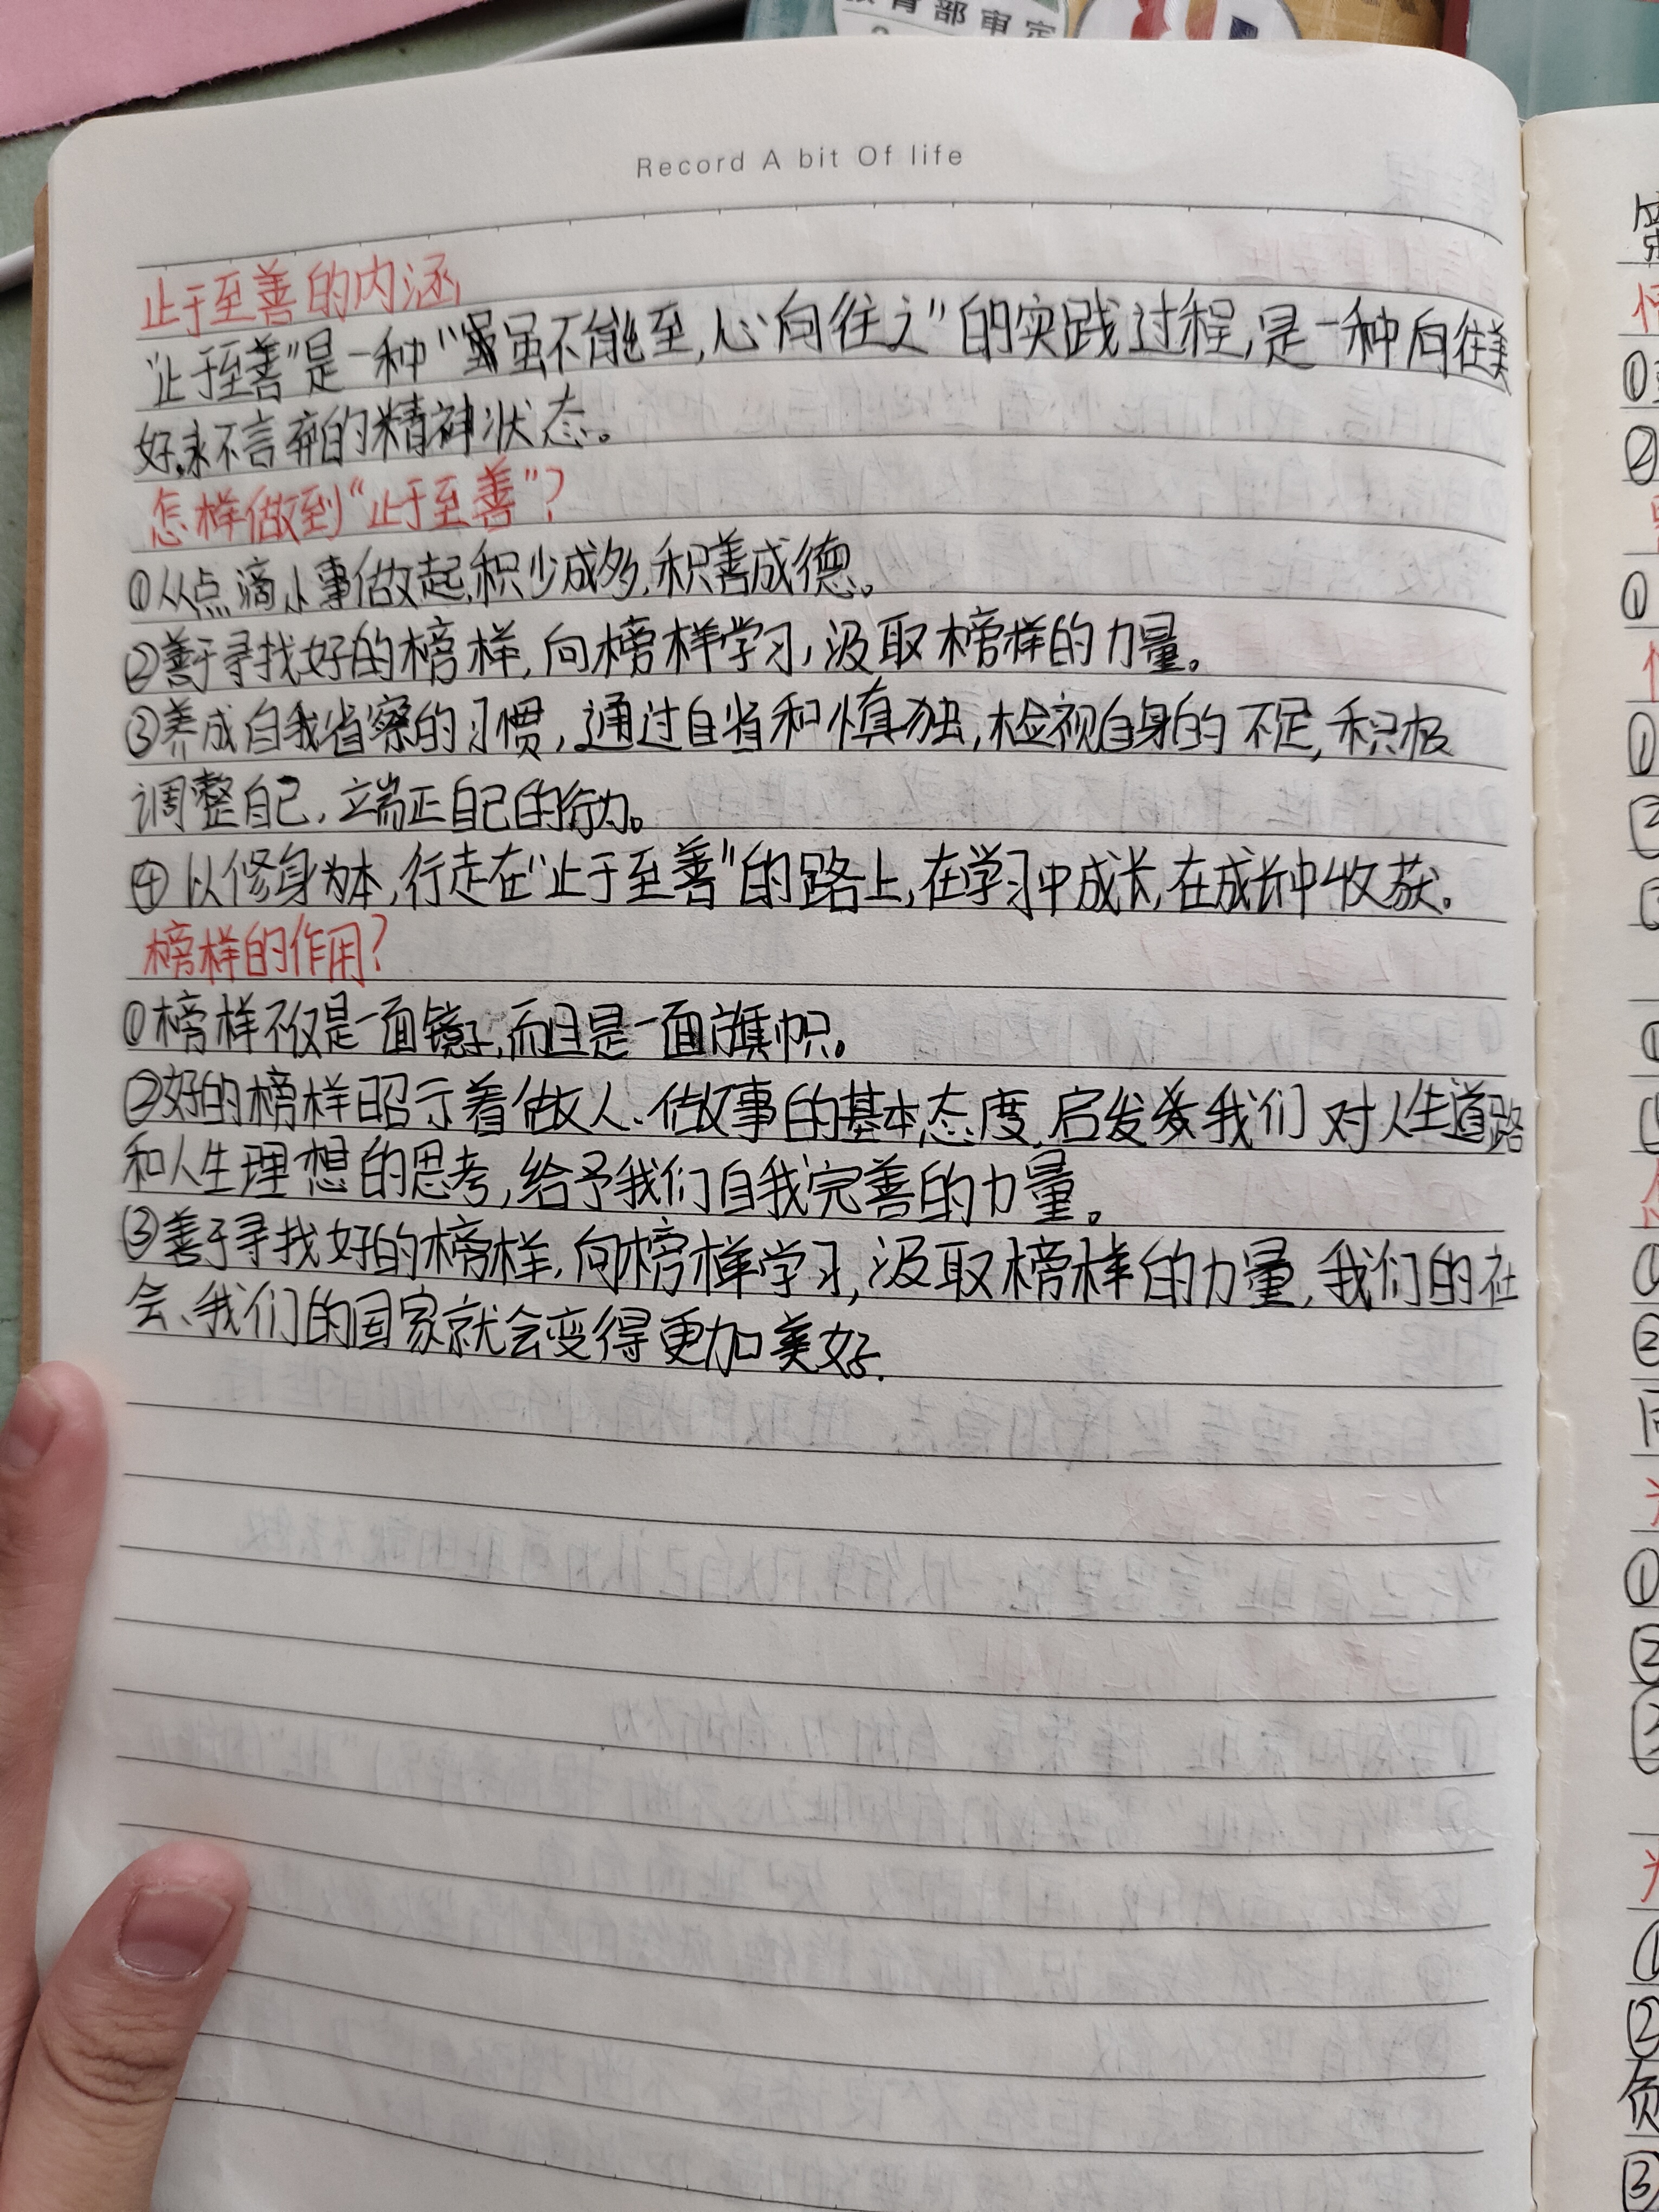 教育部审定
Record A bit Of life
止于至善的内涵
"止于至善"是一种"虽不能至,心向往之"的实践过程,是一种向往美
好,永不言弃的精神状态。
怎样做到"止于至善"?
①从点滴小事做起,积少成多,积善成德。
②善于寻找好的榜样,向榜样学习,汲取榜样的力量。
③养成自我省察的习惯,通过自省和慎独,检视自身的不足,积极
调整自己,端正自己的行为。
④以修身为本,行走在"止于至善"的路上,在学习中成长,在成长中收获。
榜样的作用?
①榜样不仅是一面镜子,而且是一面旗帜。
②好的榜样昭示着做人、做事的基本态度,启发我们对人生道路
和人生理想的思考,给予我们自我完善的力量。
③善于寻找好的榜样,向榜样学习,汲取榜样的力量,我们的社
会、我们的国家就会变得更加美好.